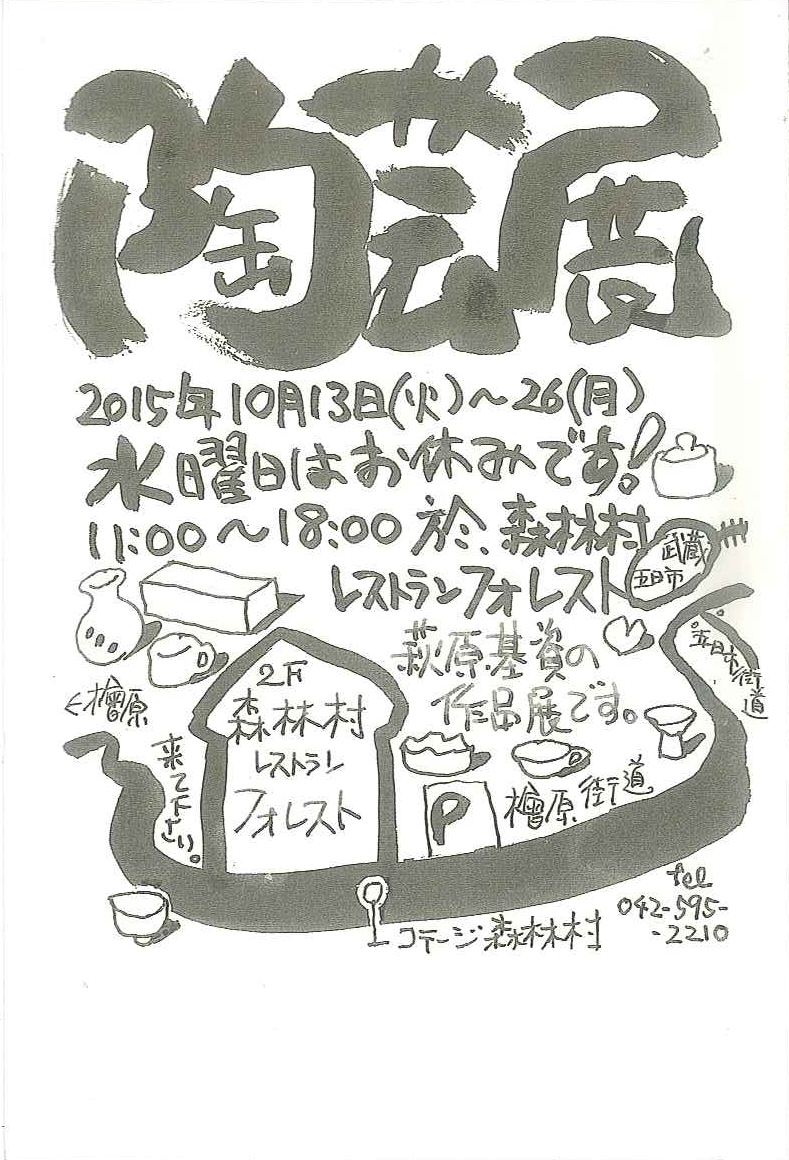 陶芸展
2015年10月13日(火)～26(月)
水曜日はお休みです!
11:00～18:00 於、森林村
レストランフォレスト
武蔵
五日市
萩原基資の
作品展です。
五日市街道
<檜原
来て下さい。
2F
森林村
レストラン
フォレスト
P
檜原街道
tel
042-595-
-2210
コテージ森林村